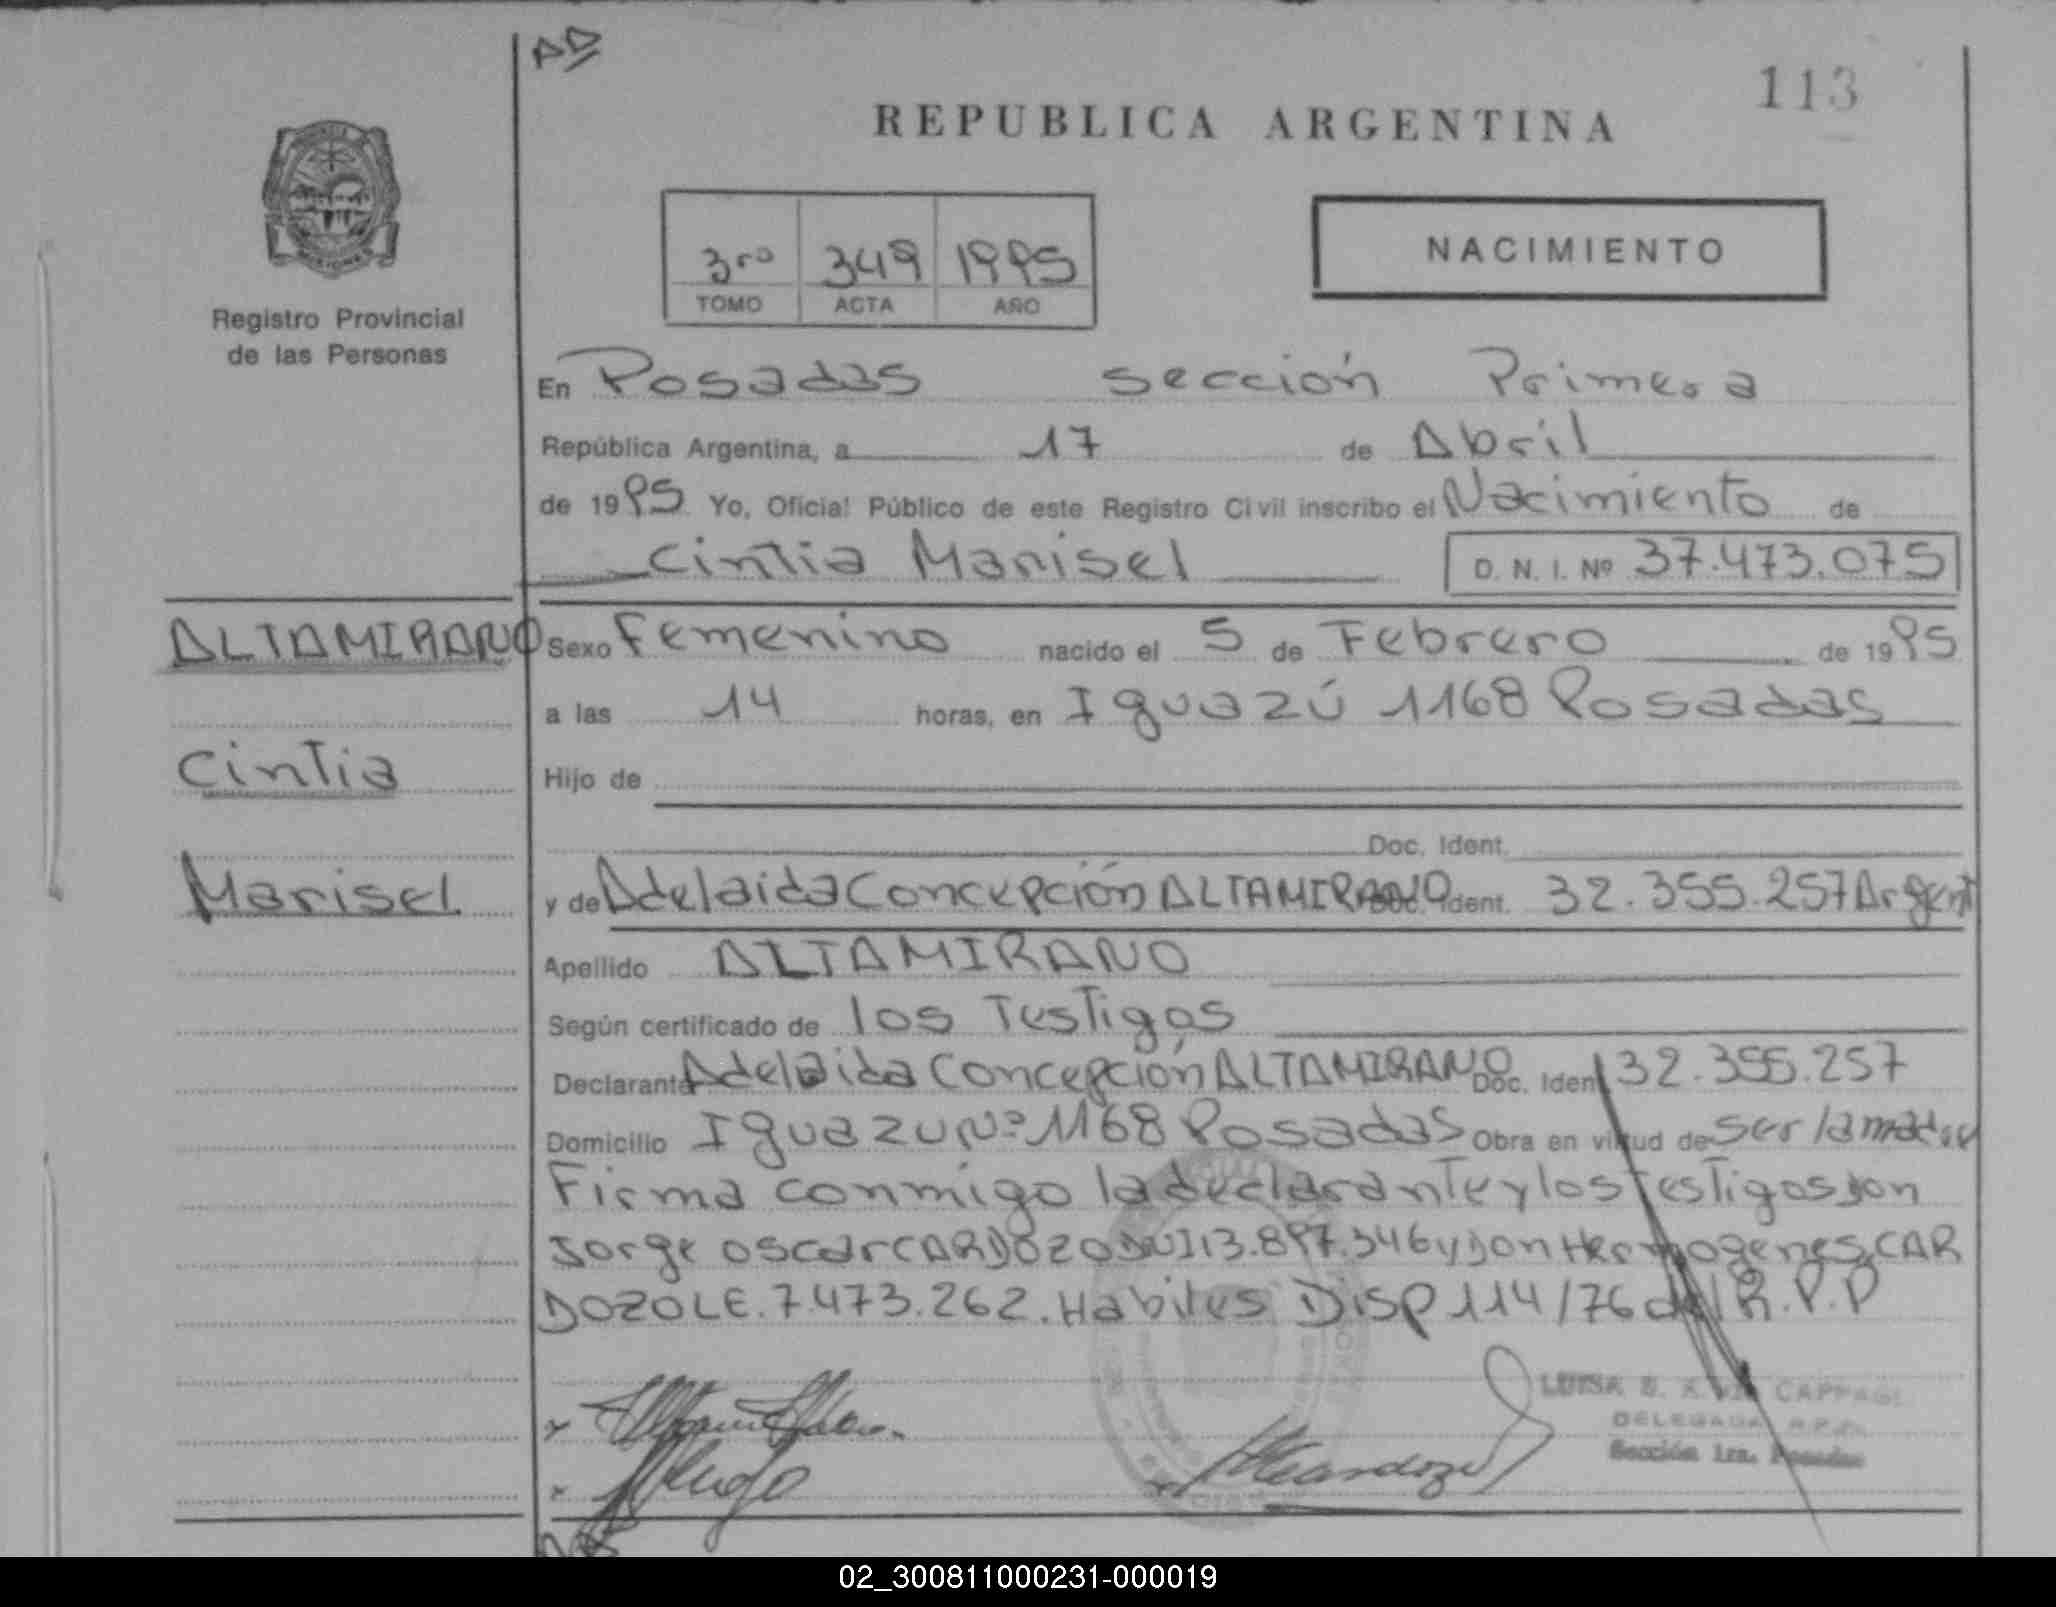 AD
113
REPUBLICA ARGENTINA
3ro 349 1995
TOMO ACTA AÑO
NACIMIENTO
Registro Provincial
de las Personas
En Posadas sección Primera
República Argentina, a 17 de Abril
de 1995 Yo, Oficial Público de este Registro Civil inscribo el Nacimiento de
Cintia Marisel D. N. I. Nº 37.473.075
ALTAMIRANO
Cintia
Marisel
Sexo Femenino nacido el 5 de Febrero de 1995
a las 14 horas, en Iguazú 1168 Posadas
Hijo de
Doc. Ident.
y de Adelaida Concepción ALTAMIRANO Doc. Ident. 32.355.257 Argent
Apellido ALTAMIRANO
Según certificado de los Testigos
Declarante Adelaida Concepción ALTAMIRANO Doc. Ident 32.355.257
Domicilio Iguazu Nº 1168 Posadas Obra en virtud de ser la madre
Firma conmigo la declarante y los testigos Don
Jorge Oscar CARDOZO DNI 13.897.346 y Don Hermogenes CAR
DOZO LE. 7.473.262. Habiles Disp 114/76 del R.P.P
LUISA CAPPAGLI
DELEGADA R.P.P.
Sección 1ra. Posadas
02_300811000231-000019